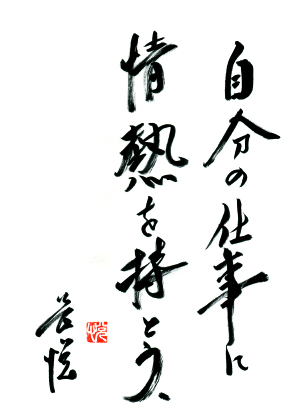 自分の仕事に
情熱を持とう、